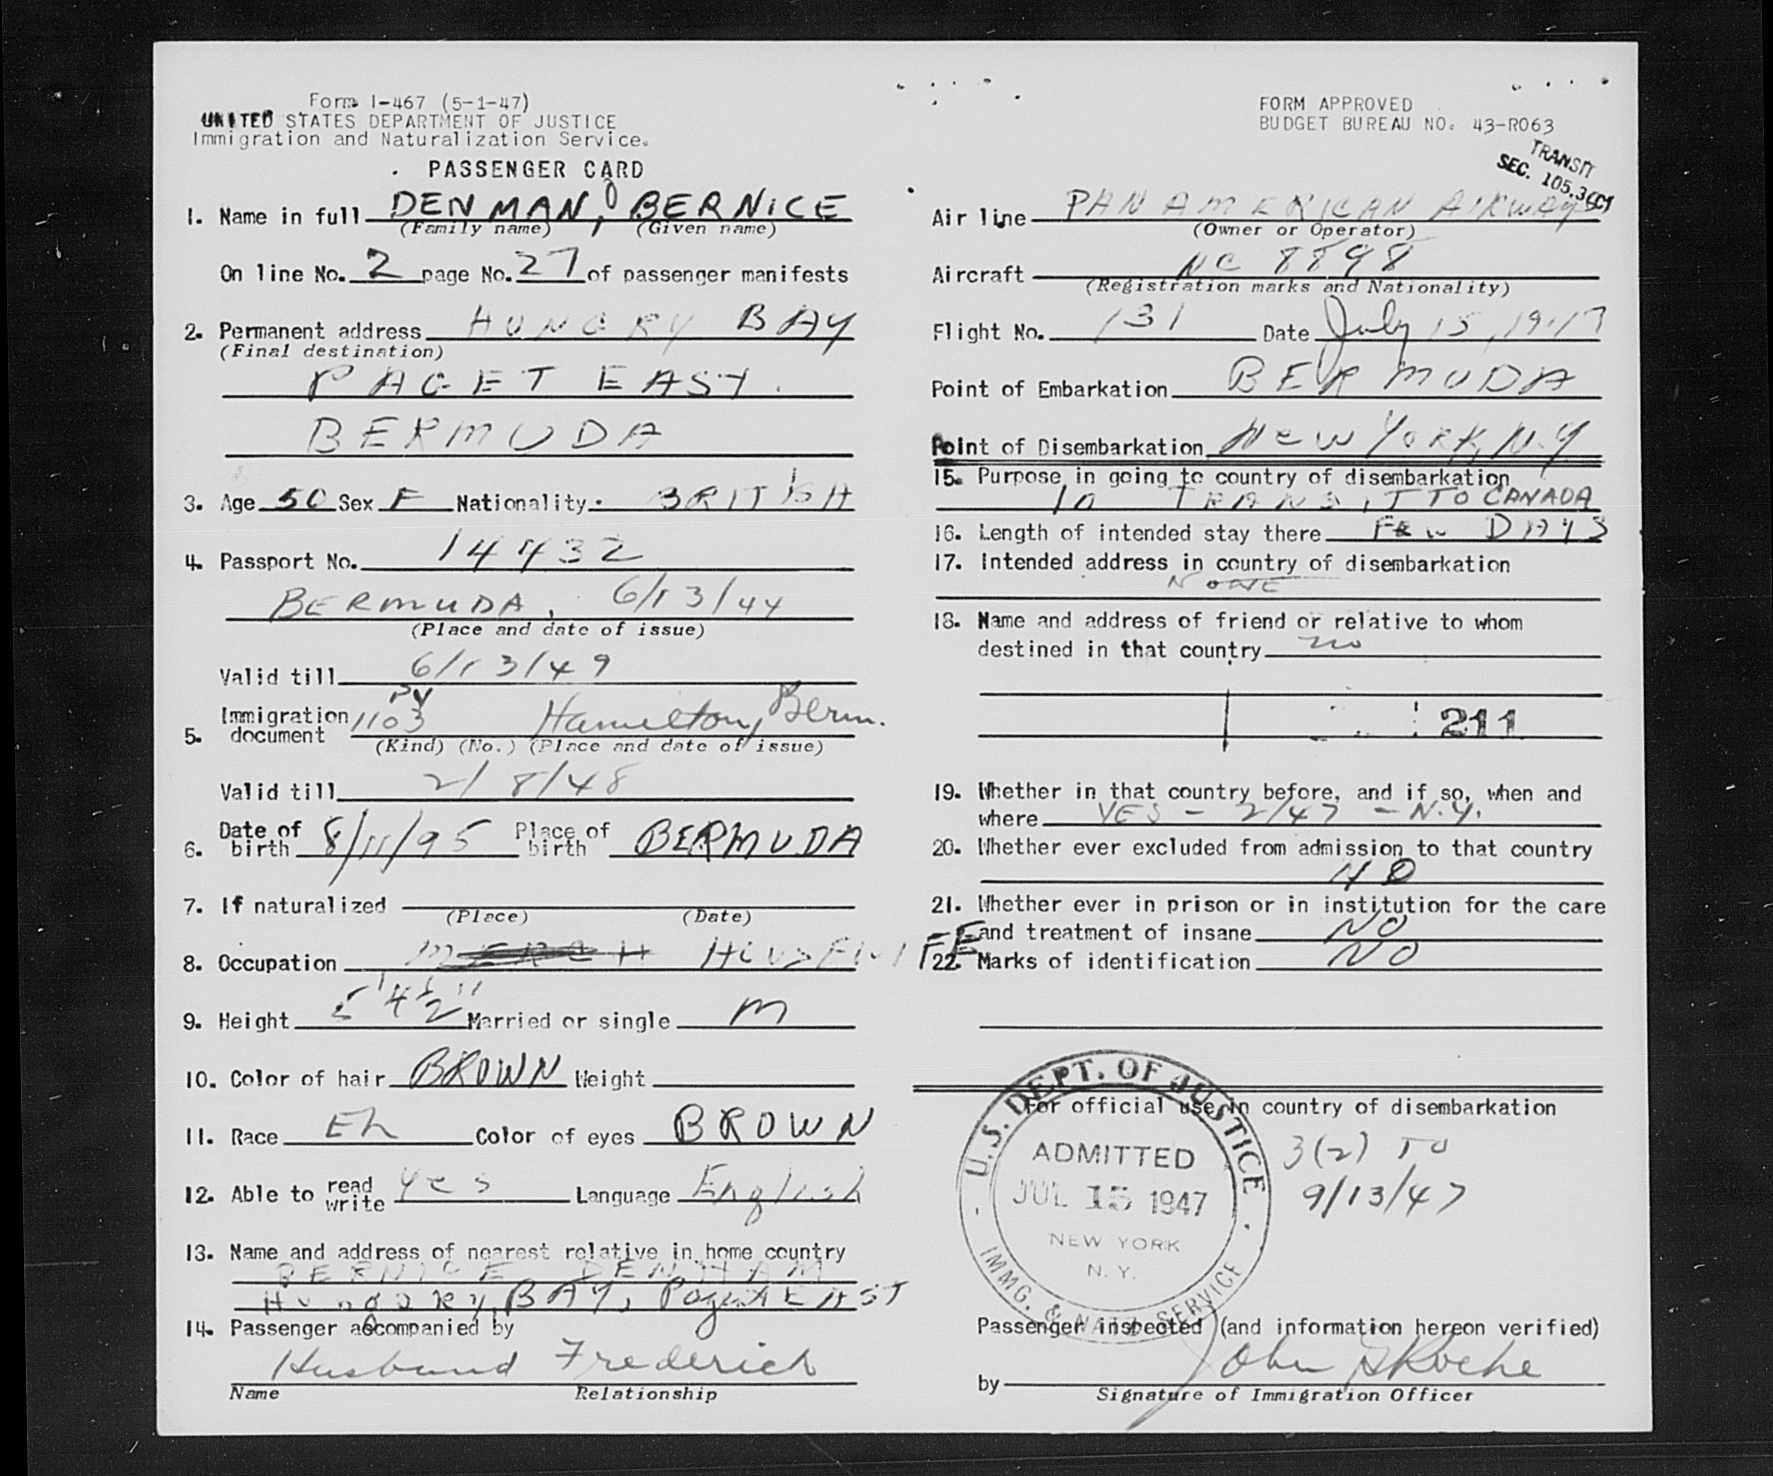 Form I-467 (5-1-47)
UNITED STATES DEPARTMENT OF JUSTICE
Immigration and Naturalization Service.
PASSENGER CARD
1. Name in full DENMAN, BERNICE
(Family name) (Given name)
On line No. 2 page No. 27 of passenger manifests
2. Permanent address HUNGRY BAY
(Final destination)
PAGET EAST.
BERMUDA
3. Age 50 Sex F Nationality. BRITISH
4. Passport No. 14432
BERMUDA, 6/13/44
(Place and date of issue)
Valid till 6/13/49
5. Immigration document PV 1103 Hamilton, Berm.
(Kind) (No.) (Place and date of issue)
Valid till 2/8/48
6. Date of birth 8/11/95 Place of birth BERMUDA
7. If naturalized
(Place) (Date)
8. Occupation HOUSEWIFE
9. Height 5' 4 1/2" Married or single M
10. Color of hair BROWN Weight
11. Race Eh Color of eyes BROWN
12. Able to read write Yes Language English
13. Name and address of nearest relative in home country
BERNICE DENHAM
Hungry BAY, Paget EAST
14. Passenger accompanied by
Husband Frederick
Name Relationship
FORM APPROVED
BUDGET BUREAU NO. 43-R063
TRANSIT
SEC. 105.3
Air line PAN AMERICAN AIRWAYS
(Owner or Operator)
Aircraft NC 8898
(Registration marks and Nationality)
Flight No. 131 Date July 15, 1947
Point of Embarkation BERMUDA
Point of Disembarkation New York, N.Y
15. Purpose in going to country of disembarkation
In TRANSIT TO CANADA
16. Length of intended stay there Few DAYS
17. Intended address in country of disembarkation
NONE
18. Name and address of friend or relative to whom
destined in that country no
211
19. Whether in that country before, and if so, when and
where YES - 2/47 - N.Y.
20. Whether ever excluded from admission to that country
NO
21. Whether ever in prison or in institution for the care
and treatment of insane NO
22. Marks of identification NO
For official use in country of disembarkation
U.S. DEPT. OF JUSTICE
ADMITTED
JUL 15 1947
NEW YORK
N. Y.
IMMG. & NATZ. SERVICE
3(2) TO
9/13/47
Passenger inspected (and information hereon verified)
by John Roche
Signature of Immigration Officer